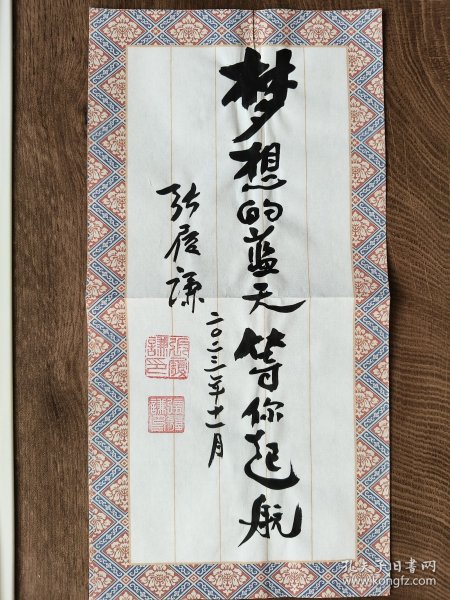 梦想的蓝天等你起航
二〇二三年十一月
张履谦
孔夫子旧书网
www.kongfz.com